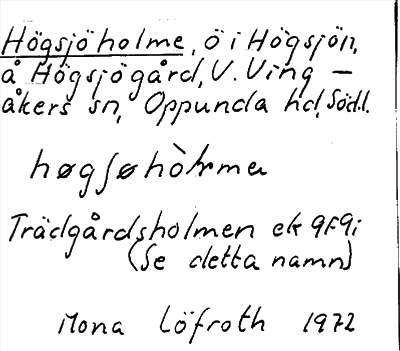 Högsjöholme, ö i Högsjön,
å Högsjögård, V. Ving-
åkers sn, Oppunda hd, Södl.
Trädgårdsholmen ek 9F9i
(Se detta namn)
Mona Löfroth 1972